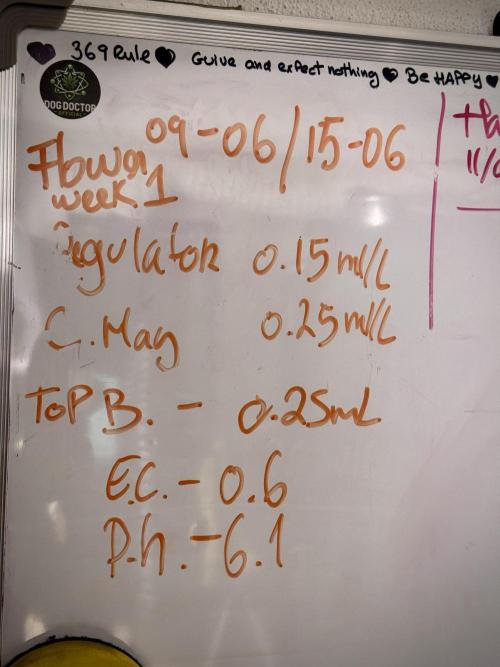 369 Rule Guive and expect nothing Be HAPPY
DOG DOCTOR
OFFICIAL
09-06/15-06
Flower
week 1
Regulator 0.15 ml/L
C. Mag 0.25 ml/L
TOP B. - 0.25mL
E.C. - 0.6
P.h. - 6.1
11/0